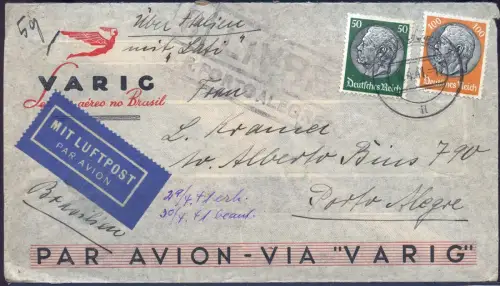 5g
über Italien
mit "Lati"
VARIG
aéreo no Brasil
Frau
50 50
Deutsches Reich
100 100
Deutsches Reich
L. Kramer
Alberto Bins 790
Porto Alegre
MIT LUFTPOST
PAR AVION
Brasilien
29/4. 41 erh.
30/4. 41 beant.
PAR AVION - VIA "VARIG"